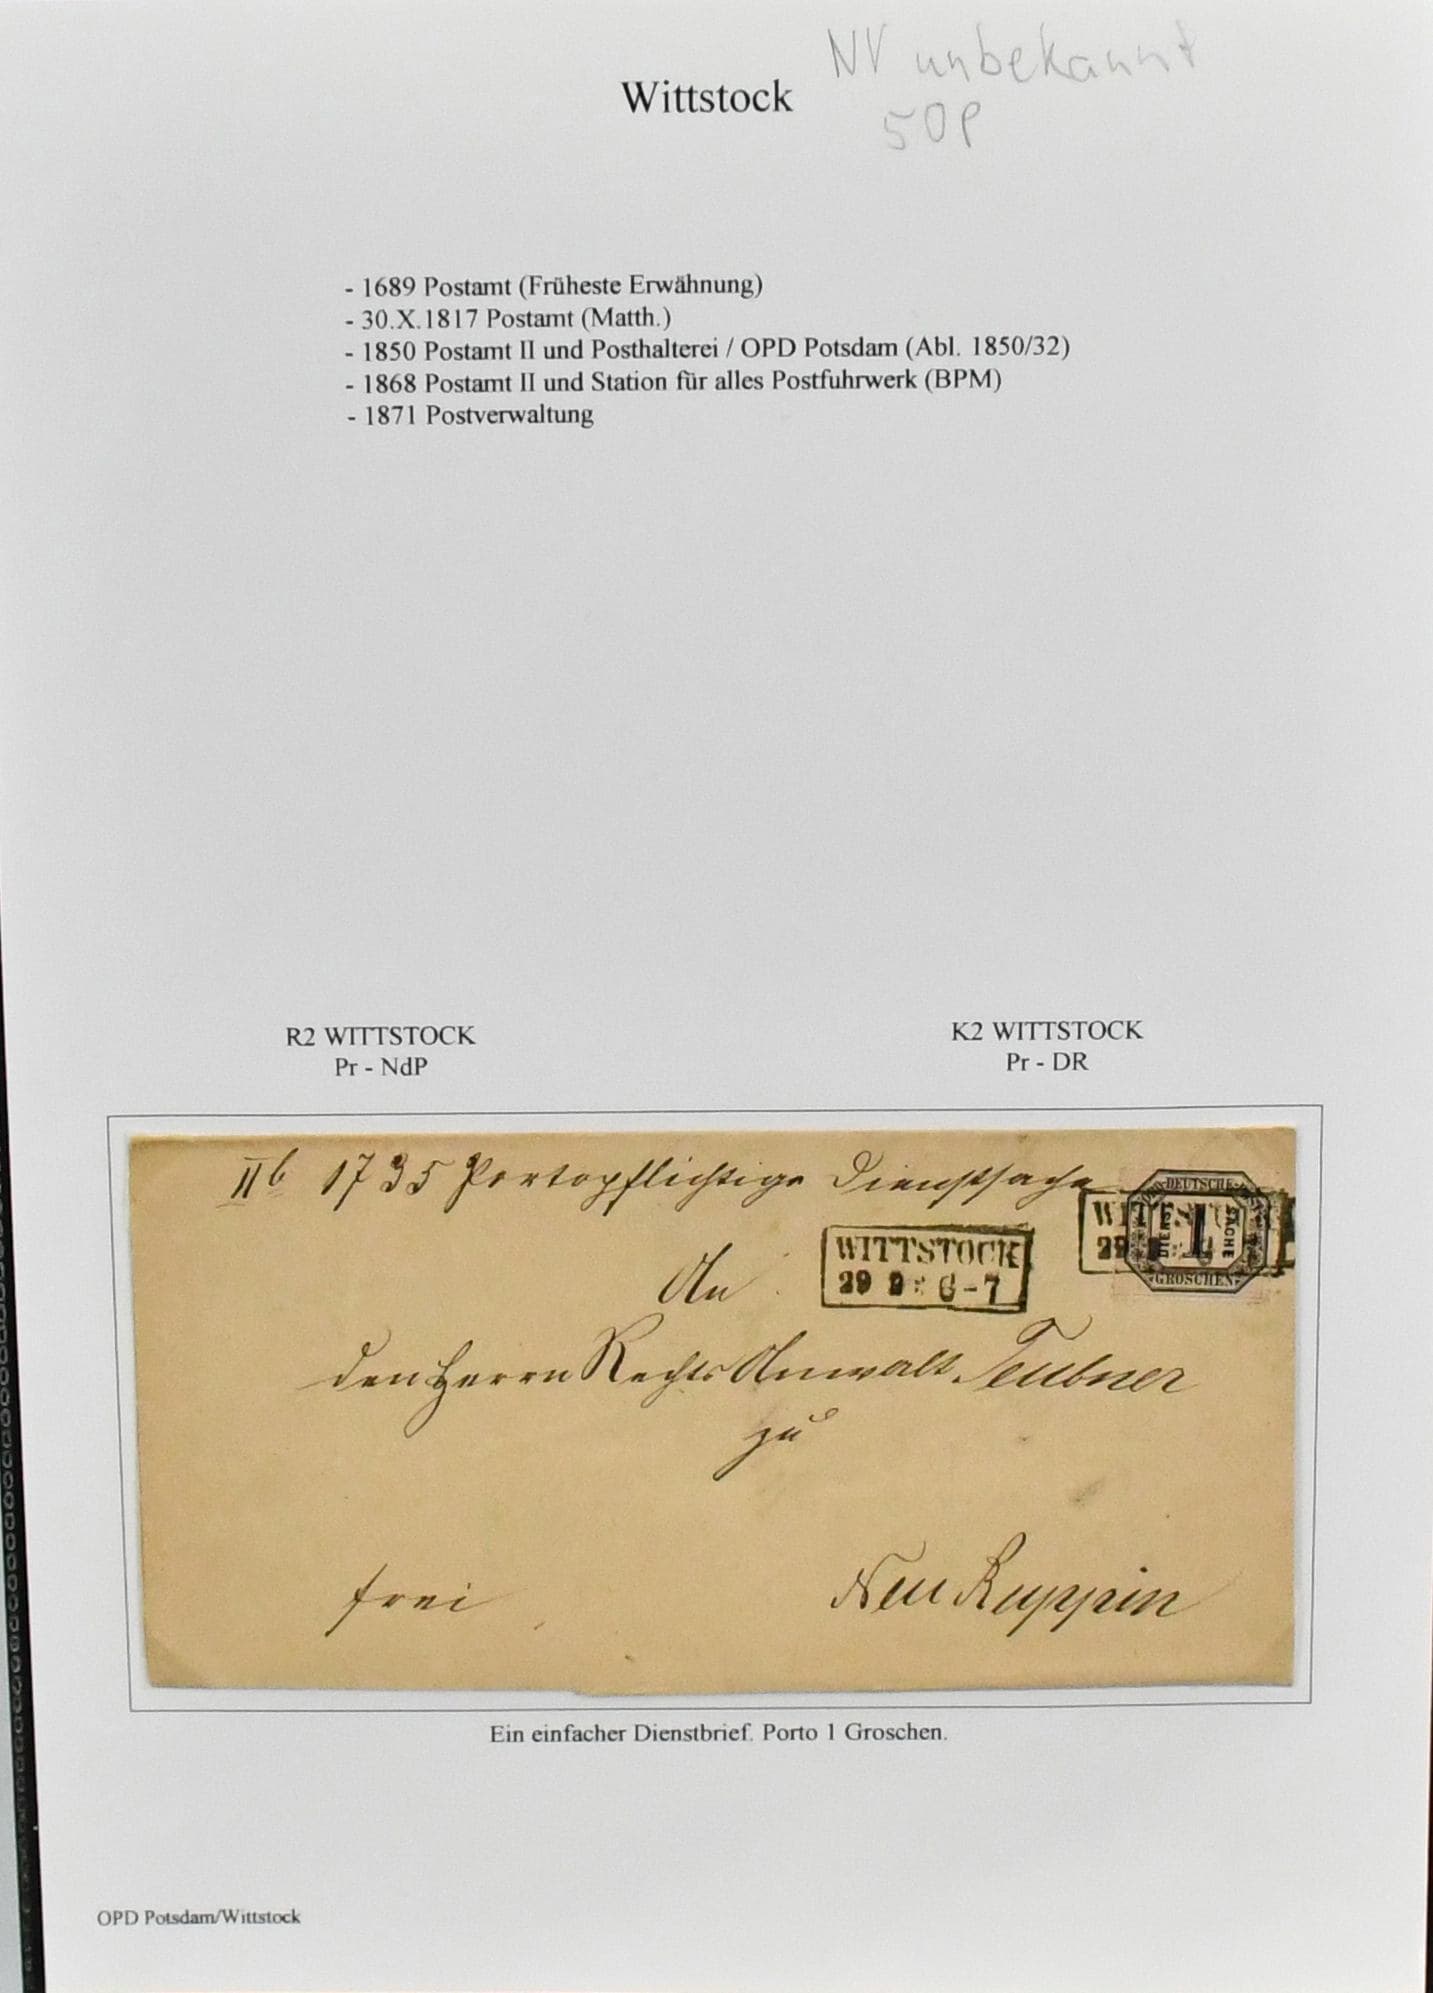 NV unbekannt
Wittstock
50P
- 1689 Postamt (Früheste Erwähnung)
- 30.X.1817 Postamt (Matth.)
- 1850 Postamt II und Posthalterei / OPD Potsdam (Abl. 1850/32)
- 1868 Postamt II und Station für alles Postfuhrwerk (BPM)
- 1871 Postverwaltung
R2 WITTSTOCK
Pr - NdP
K2 WITTSTOCK
Pr - DR
IIb 1735 Portopflichtige Dienstsache
DEUTSCHE
DIENST SACHE
1
GROSCHEN
WITTSTOCK
29 9 6-7
An
den Herrn Rechts Anwalt Teubner
zu
frei
Neu Ruppin
Ein einfacher Dienstbrief. Porto 1 Groschen.
OPD Potsdam/Wittstock